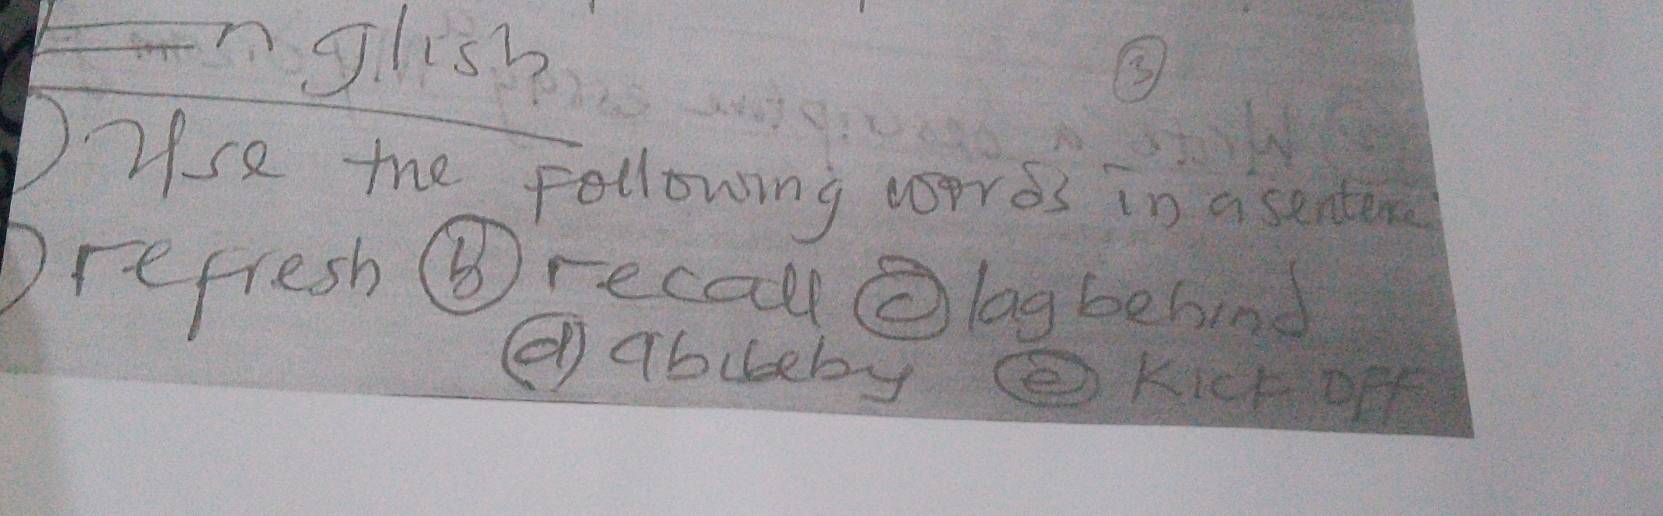 English
③
) Use the Following words in a sentence
) refresh ⓑ recall ⓒ lag behind
ⓓ abibeby ⓔ Kick OFF